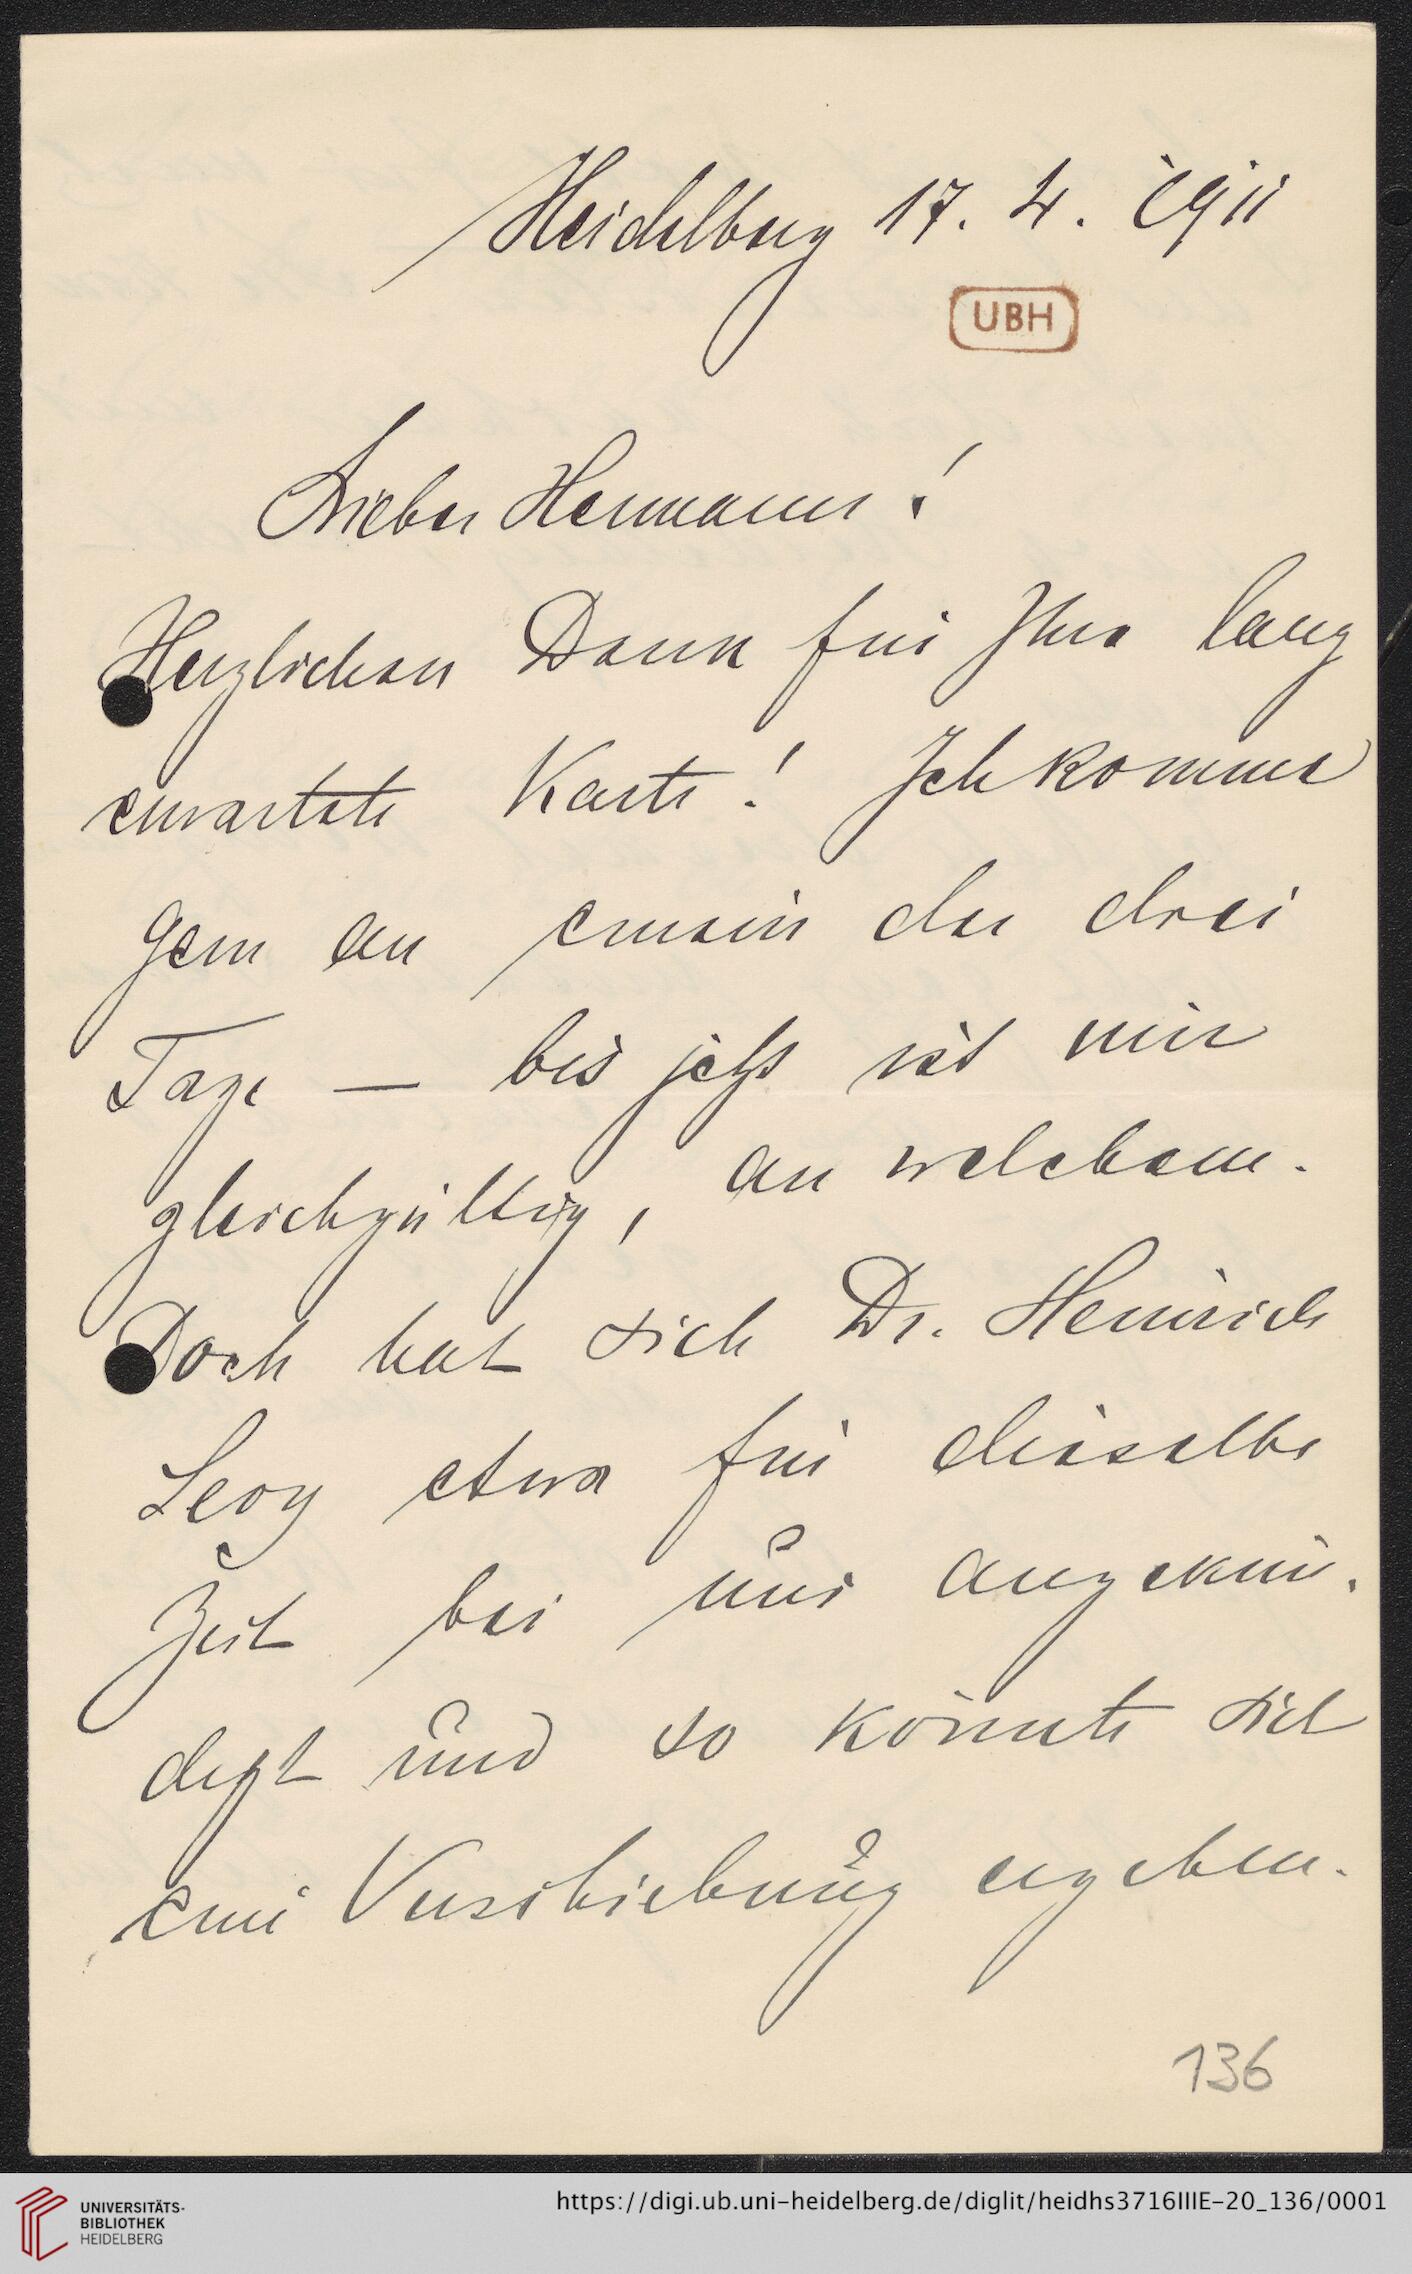 Heidelberg 17. 4. 1911
UBH
Lieber Hermann!
Herzlichen Dank für Ihre lang
erwartete Karte! Ich komme
gern an einem der drei
Tage — bis jetzt ist mir
gleichgültig, an welchem.
Doch hat sich Dr. Heinrich
Levy etwa für dieselbe
Zeit bei uns angekün-
digt und so könnte sich
eine Verschiebung ergeben.
136
UNIVERSITÄTS-
BIBLIOTHEK
HEIDELBERG
https://digi.ub.uni-heidelberg.de/diglit/heidhs3716IIIE-20_136/0001